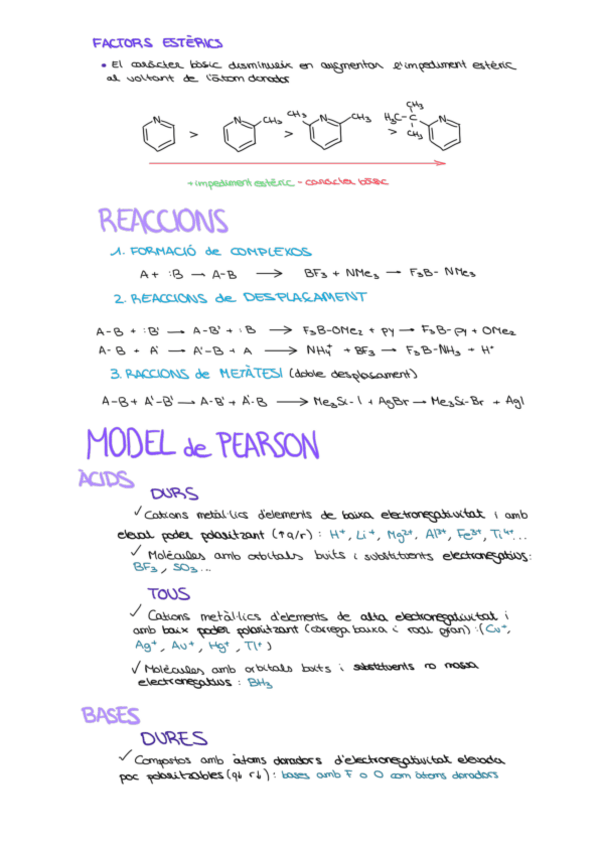 FACTORS ESTÈRICS
• El caràcter bàsic disminueix en augmentar l'impediment estèric
al voltant de l'àtom donador
N > N CH₃ > CH₃ N CH₃ > CH₃ H₃C-C CH₃ N
+ impediment estèric - caràcter bàsic
REACCIONS
1. FORMACIÓ de COMPLEXOS
A + :B → A-B → BF₃ + NMe₃ → F₃B-NMe₃
2. REACCIONS de DESPLAÇAMENT
A-B + :B' → A-B' + :B → F₃B-OMe₂ + py → F₃B-py + OMe₂
A-B + A' → A'-B + A → NH₄⁺ + BF₃ → F₃B-NH₃ + H⁺
3. RACCIONS de METÀTESI (doble desplaçament)
A-B + A'-B' → A-B' + A'-B → Me₃Si-I + AgBr → Me₃Si-Br + AgI
MODEL de PEARSON
ÀCIDS
DURS
✓ Cations metàl·lics d'elements de baixa electronegativitat i amb
eleval poder polaritzant (↑q/r) : H⁺, Li⁺, Mg²⁺, Al³⁺, Fe³⁺, Ti⁴⁺...
✓ Molècules amb orbitals buits i substituents electronegatius:
BF₃, SO₃...
TOUS
✓ Cations metàl·lics d'elements de alta electronegativitat i
amb baix poder polaritzant (càrrega baixa i radi gran) :(Cu⁺,
Ag⁺, Au⁺, Hg⁺, Tl⁺)
✓ Molècules amb orbitals buits i substituents no massa
electronegatius : BH₃
BASES
DURES
✓ Compostos amb àtoms donadors d'electronegativitat elevada
poc polaritzables (q↓ r↓) : bases amb F o O com àtoms donadors